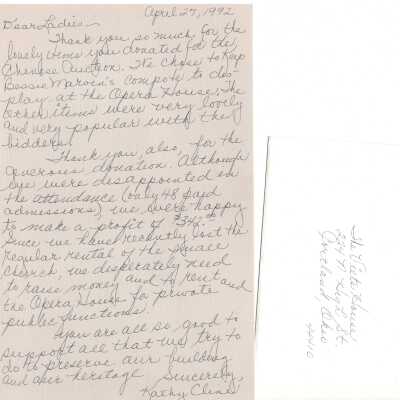 April 27, 1992
Dear Ladies -
Thank you so much for the
lovely items you donated for the
Chinese Auction. We chose to keep
Bessie Marvin's compote to dis-
play at the Opera House. The
other items were very lovely
and very popular with the
bidders.
Thank you, also, for the
generous donation. Although
we were disappointed in
the attendance (only 48 paid
admissions), we were happy
to make a profit of $342.
Since we have recently lost the
regular rental of the
Church, we desperately need
to raise money and to rent
the Opera House for private and
public functions.
You are all so good to
support all that we try to
do to preserve our building
and our heritage. Sincerely,
Kathy Cline
House,
St.
Ohio